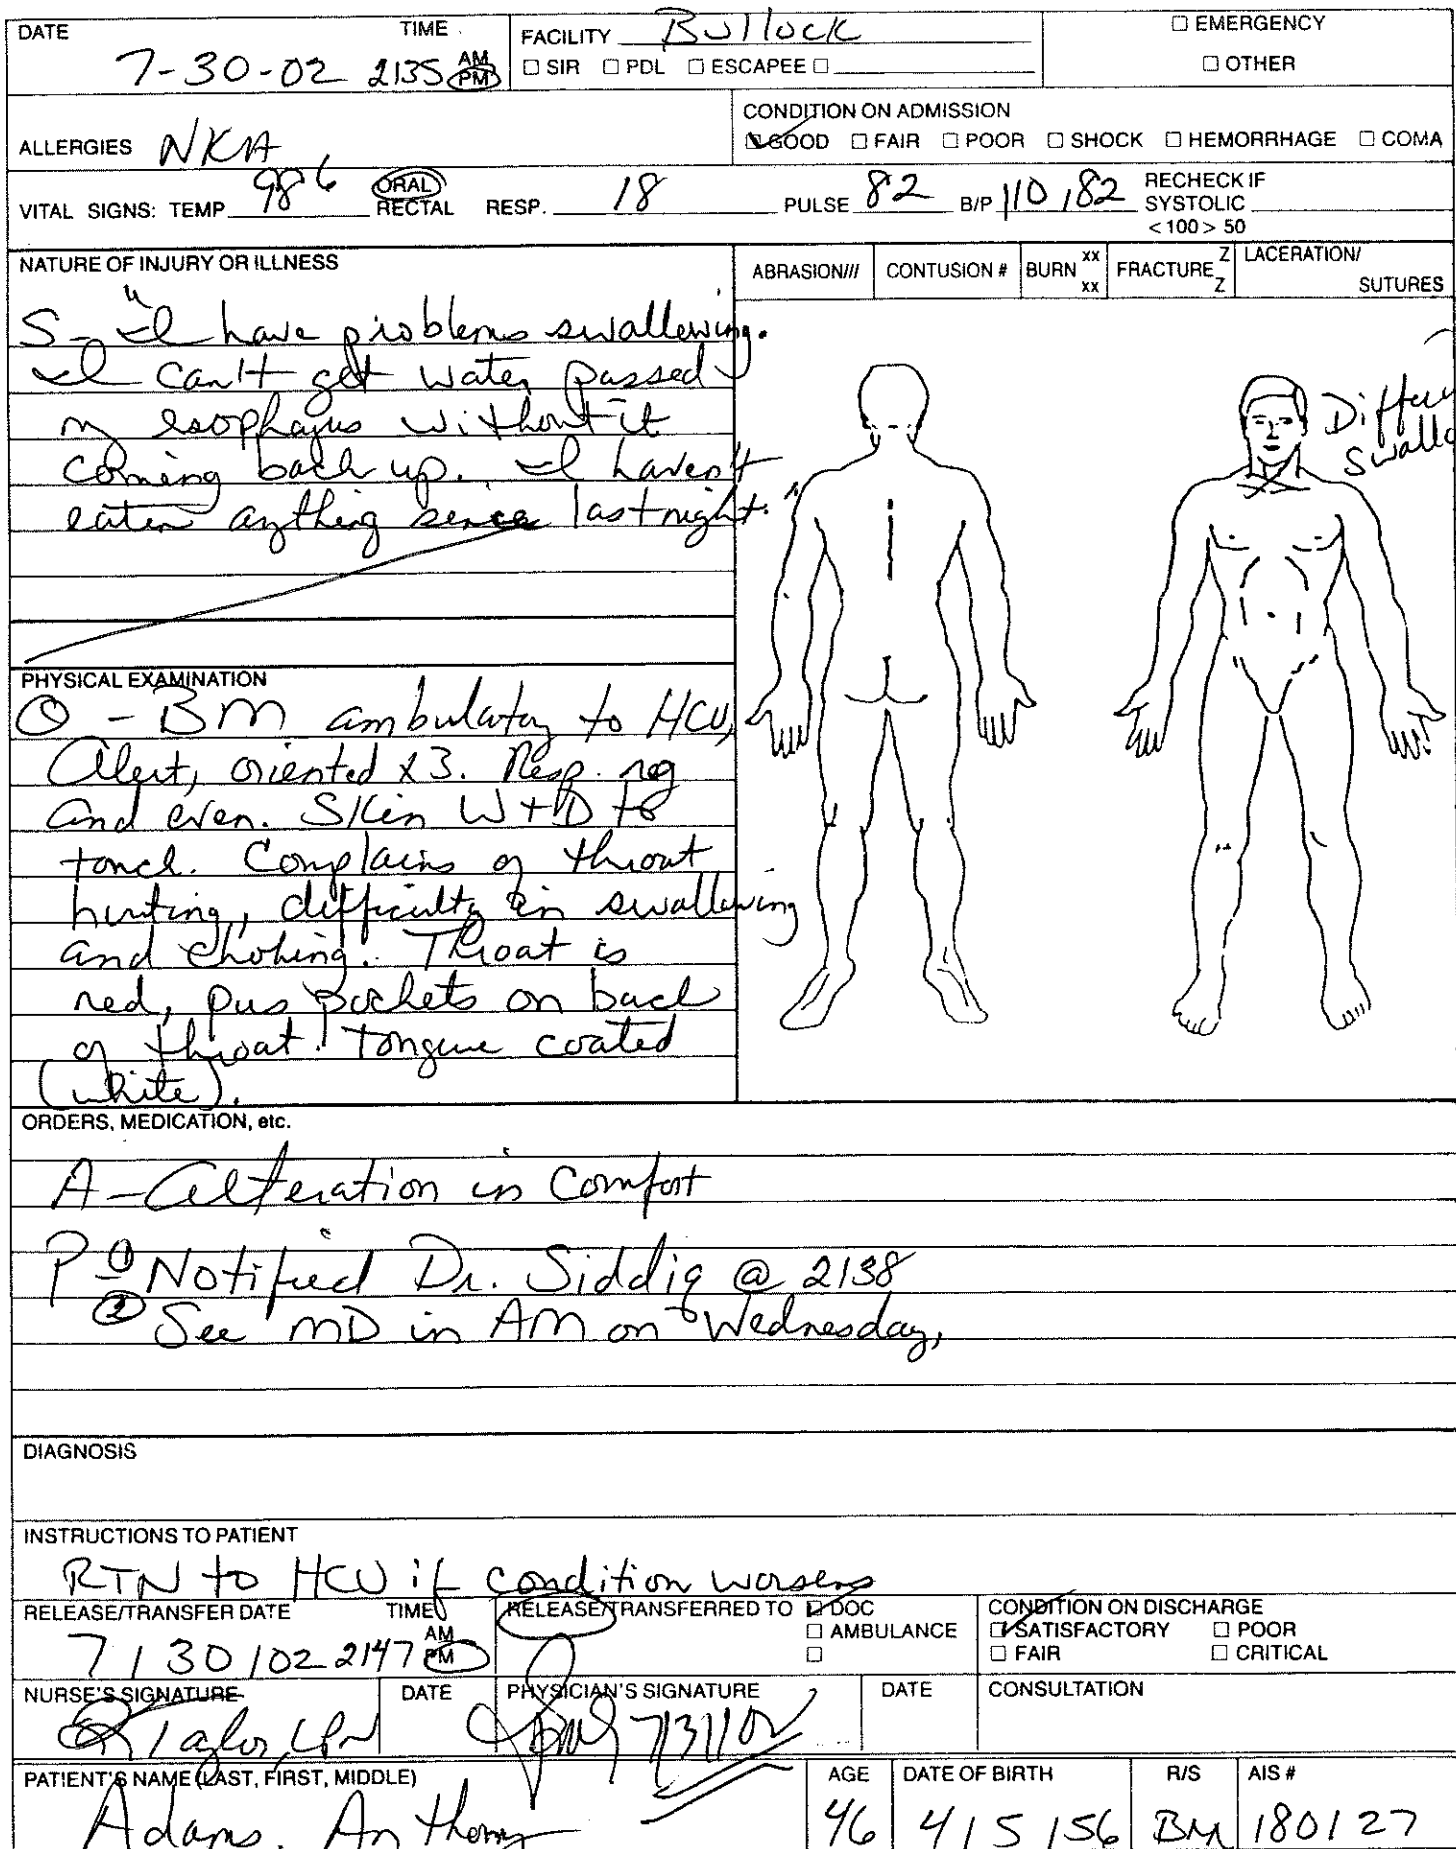 DATE TIME FACILITY Bullock ☐ EMERGENCY
7-30-02 2135 AM PM ☐ SIR ☐ PDL ☐ ESCAPEE ☐ ☐ OTHER
ALLERGIES NKA CONDITION ON ADMISSION
☑ GOOD ☐ FAIR ☐ POOR ☐ SHOCK ☐ HEMORRHAGE ☐ COMA
VITAL SIGNS: TEMP 98 6 ORAL RECTAL RESP. 18 PULSE 82 B/P 110 / 82 RECHECK IF SYSTOLIC <100 > 50
NATURE OF INJURY OR ILLNESS
ABRASION/// CONTUSION # BURN xx xx FRACTURE Z Z LACERATION/ SUTURES
S- "I have problems swallowing.
I can't get water passed
my esophagus without it
coming back up. I haven't
eaten anything since last night."
Swallo
PHYSICAL EXAMINATION
O - BM ambulatory to HCU,
Alert, oriented x3. Resp. reg
and even. Skin W+D to
touch. Complains of throat
hurting, difficulty in swallowing
and choking. Throat is
red, pus pockets on back
of throat. Tongue coated
(white).
ORDERS, MEDICATION, etc.
A- Alteration in Comfort
P ① Notified Dr. Siddiq @ 2138
② See MD in AM on Wednesday,
DIAGNOSIS
INSTRUCTIONS TO PATIENT
RTN to HCU if condition worsens
RELEASE/TRANSFER DATE TIME RELEASE/TRANSFERRED TO ☑ DOC CONDITION ON DISCHARGE
7 / 30 / 02 2147 AM PM ☐ AMBULANCE ☑ SATISFACTORY ☐ POOR
☐ ☐ FAIR ☐ CRITICAL
NURSE'S SIGNATURE DATE PHYSICIAN'S SIGNATURE DATE CONSULTATION
Taylor, LPN 7/31/02
PATIENT'S NAME (LAST, FIRST, MIDDLE) AGE DATE OF BIRTH R/S AIS #
Adams, Anthony 46 4 / 5 / 56 BM 180127